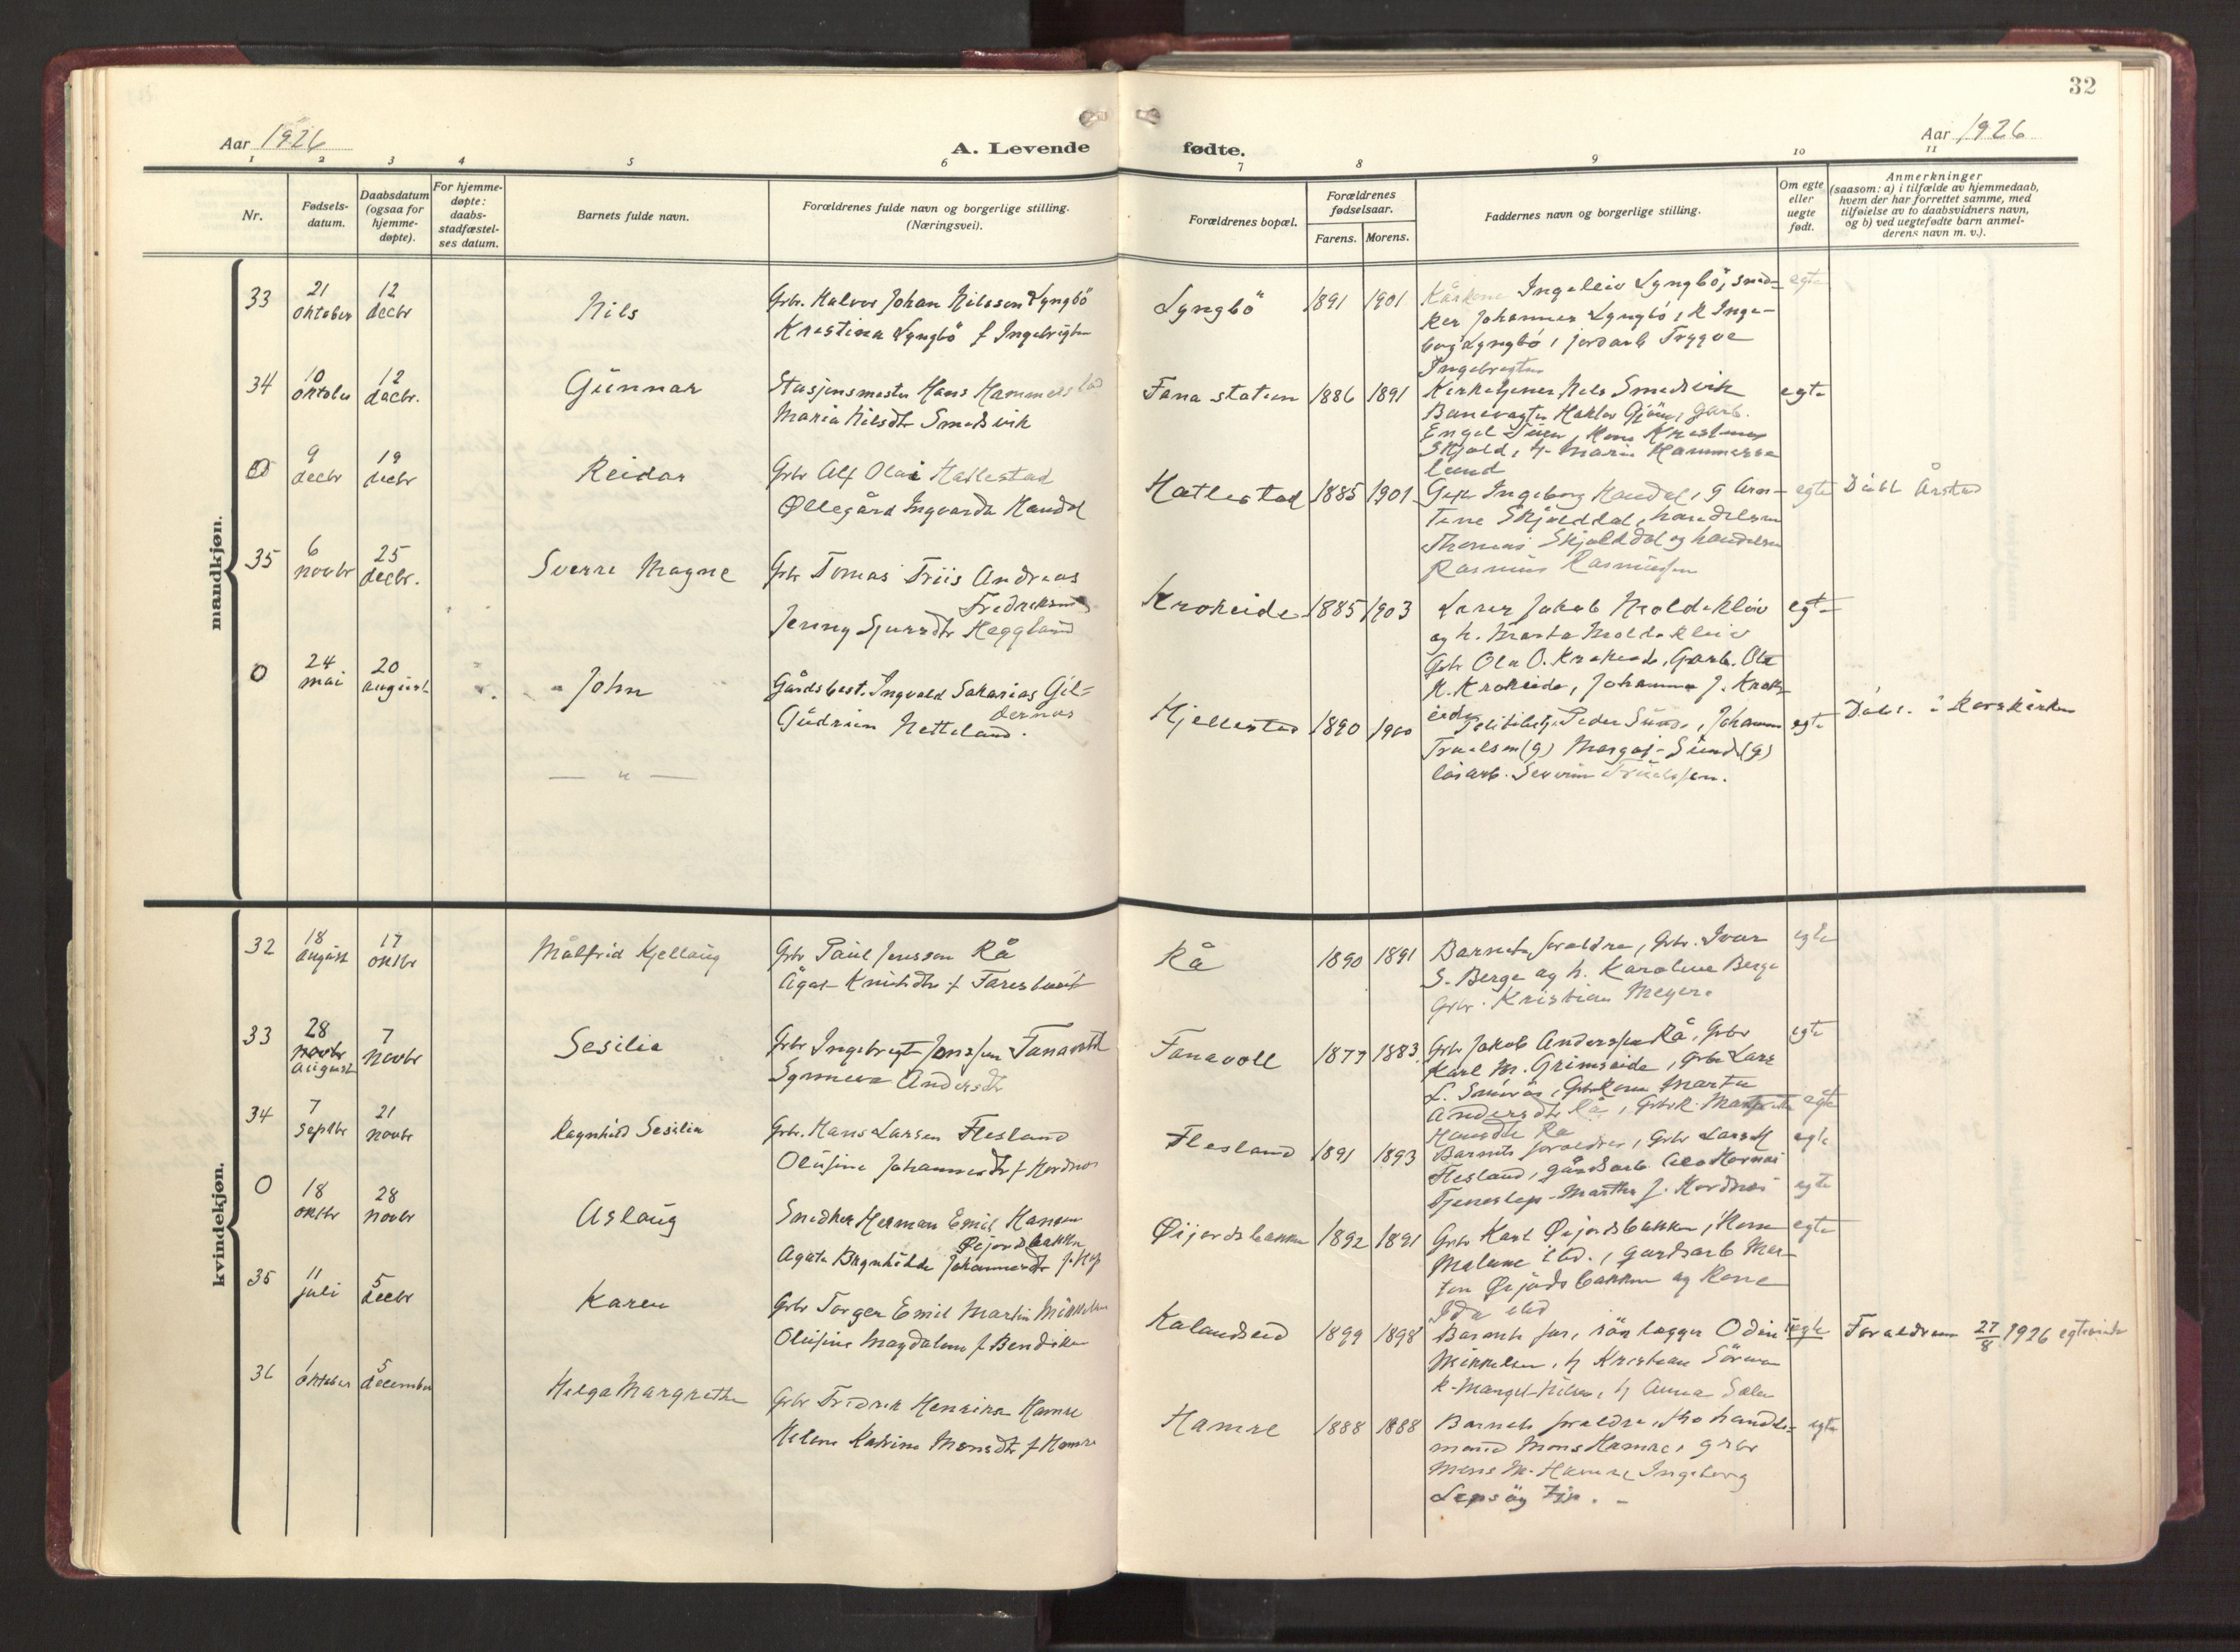 32
Aar 1926
A. Levende
fødte.
Aar 1926
1 2 3 4 5 6 7 8 9 10 11
Nr.
Fødsels-
datum.
Daabsdatum
(ogsaa for
hjemme-
døpte).
For hjemme-
døpte:
daabs-
stadfæstel-
ses datum.
Barnets fulde navn.
Forældrenes fulde navn og borgerlige stilling.
(Næringsvei).
Forældrenes bopæl.
Forældrenes
fødselsaar.
Farens. Morens.
Faddernes navn og borgerlige stilling.
Om egte
eller
uegte
født.
Anmerkninger
(saasom: a) i tilfælde av hjemmedaab,
hvem der har forrettet samme, med
tilføielse av to daabsvidners navn,
og b) ved uegtefødte barn anmel-
derens navn m. v.).
mandkjøn.
33
21
oktober
12
decbr
Nils
Grbr. Halvor Johan Nilssen Lyngbö
Kristina Lyngbö f Ingebrigtsen
Lyngbö
1891 1901
Ingeleiv Lyngbö, sned-
ker Johannes Lyngbö, K Inge-
borg Lyngbö, jordarb Trygve
Ingebrigtsen
egte
34
10
oktober
12
decbr.
Gunnar
Stasjonsmester Hans Hammers
Maria Nilsdtr Smedsvik
Fana station
1886 1891
Kirketjener Nils Smedsvik
Banevagter Gjøen, garb.
Engel
Skjold, Marie Hammers
lund
egte
0
9
decbr
19
decbr
Reidar
Grbr Alf Olai Hatlestad
Øllegård Ingvarda Haudal
Hatlestad
1885 1901
Ingeborg Haudal, g Arn-
Tine Skjolddal, handelsm
Thomas Skjolddal og handelsm
Rasmus Rasmussen
egte
Döbt Årstad
35
6
novbr
25
decbr.
Sverre Magne
Grbr Tomas Friis Andreas
Fredriksen
Jenny Sjursdtr Heggland
Krokeide
1885 1903
Lærer Jakob Moldekleiv
og h. Marta Moldekleiv
Grbr Ola O. Krokeide, Garb. Ole
K. Krokeide, Johanna J. Krok-
eide
egte
0
24
mai
20
august
John
Gårdsbest. Ingvald Sakarias Gil-
dernes
Gudrun Netteland.
Hjellestad
1890 1900
Politibetj. Peder Sunde, Johann
Truelsen (g) Margoj Sund (g)
lösarb. Severin Truelsen.
egte
Döbt. i Korskirken
— " —
kvindekjøn.
32
18
august
17
oktbr
Målfrid Kjellaug
Grbr Paul Jensson Rå
Ågot Knutsdtr f Farestveit
Rå
1890 1891
Barnets foreldre, Grbr. Ivar
S. Berge og h. Karoline Berge
Grbr. Kristian Meyer.
egte
33
28
novbr
august
7
novbr
Sesilie
Grbr Ingebrigt Jonssen Fanavoll
Synneva Andersdtr
Fanavoll
1877 1883
Grbr Jakob Anderssen Rå, Grbr
Karl M. Grimseide, Grbr Lars
L. Smörås, Grbr kone Marta
Andersdtr Rå, Grbr k.
Rå
egte
34
7
septbr
21
novbr
Ragnhild Sesilie
Grbr. Hans Larsen Flesland
Olufine Johannesdtr f Hordnes
Flesland
1891 1893
Barnets foreldre, Grbr Lars H
Flesland, gårdsarb
Tjenestep. Martha J. Hordnes
egte
0
18
oktbr
28
novbr
Aslaug
Snedker Herman Emil Hansen
Øijordsbakken
Agate Brynhilde Johannesdtr f. Hop
Øijordsbakken
1892 1891
Grbr Karl Øijordsbakken, Kone
Malene ibd., gardsarb Mar-
ton Øijordsbakken og Kone
Ida ibd
egte
35
11
juli
5
decbr
Karen
Grbr Torger Emil Martin Mikkelsen
Olufine Magdalene f Bendiksen
Kalandseid
1899 1898
Barnets far, rörlegger Odin
Mikkelsen, h Kristian Sörensen
K. Nilsen, h Anna Salen
uegte
Foreldrene 27/8 1926 egteviede
36
1
oktober
5
december
Helga Margrethe
Grbr Fredrik Henriksen Hamre
Helene Katrine Monsdtr f Hamre
Hamre
1888 1888
Barnets foreldre, handels-
mand Mons Hamre, grbr
Mons M. Hamre, Ingeborg
Lepsöy Tjp. -
egte